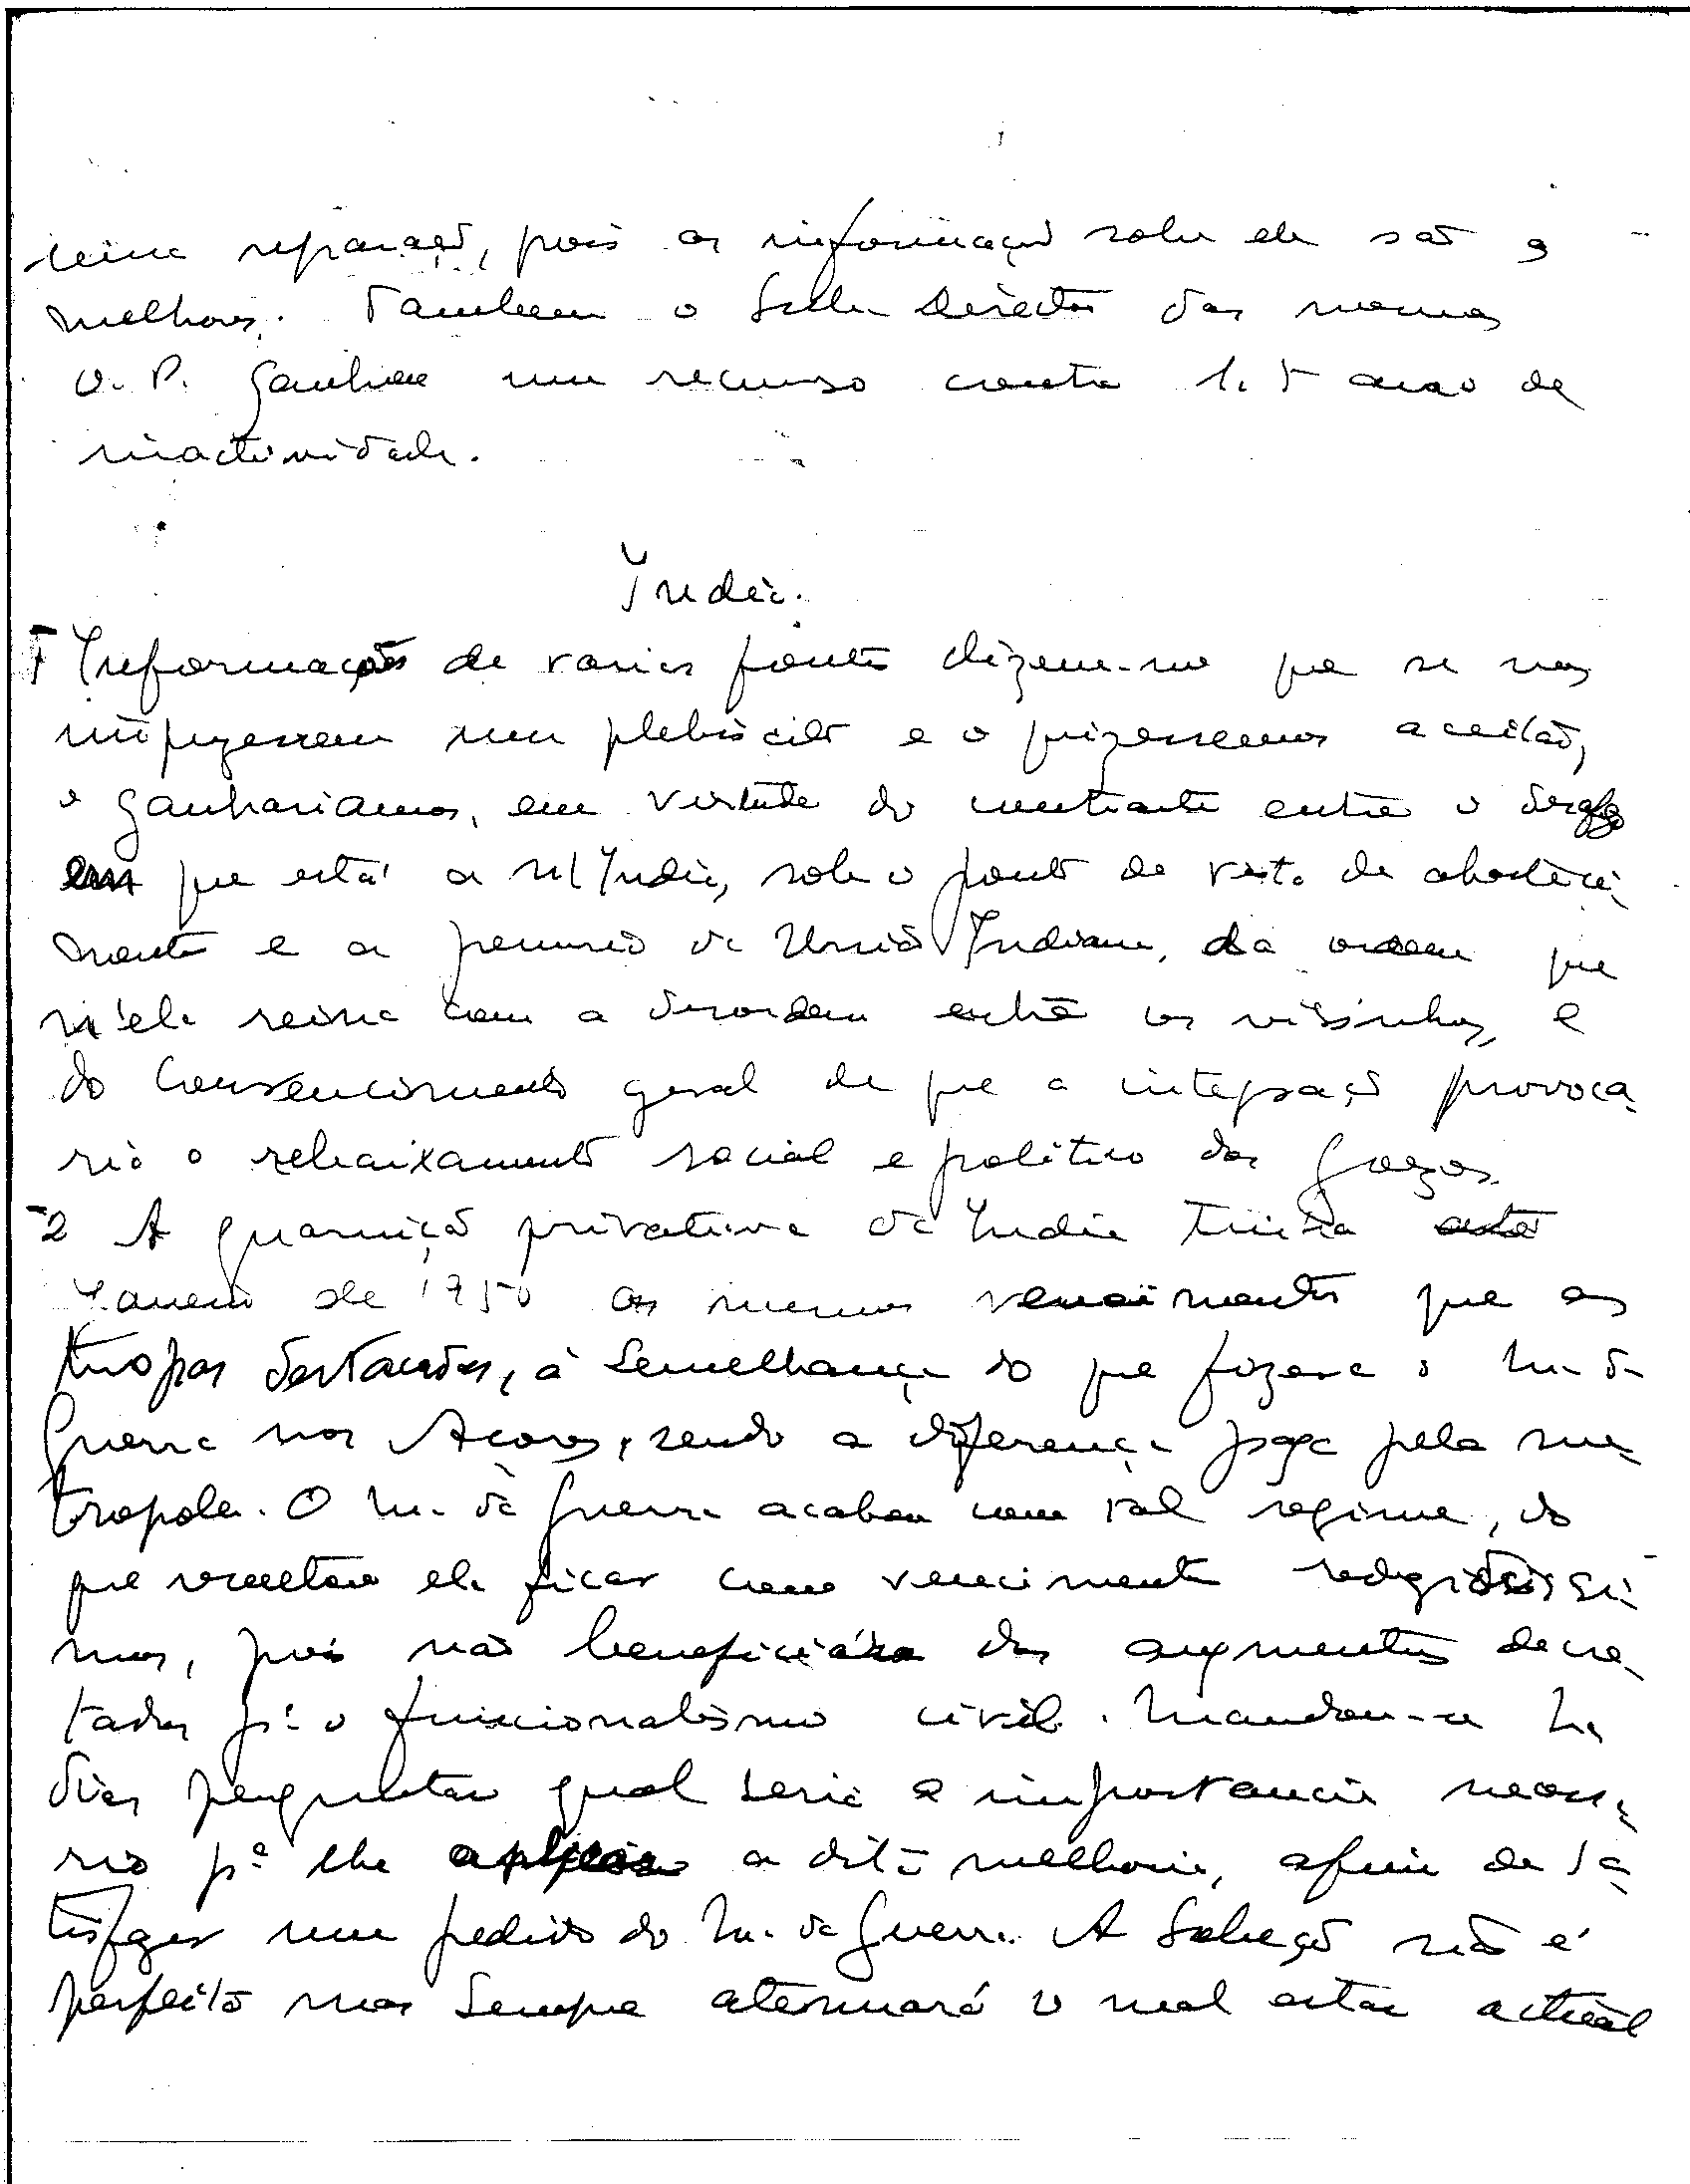 uma reparação, pois as informações sobre ele são as
melhores. Tambem o Director das mesmas
O. P. ganhou um recurso contra 1.5 anos de
inactividade.
India.
1 Informações de varias fontes dizem-me que se nos
impuzessem um plebiscito e o quizessemos aceitar,
o ganhariamos, em virtude do contraste entre o desafogo
em que está a n/ India, sob o ponto de vista de abasteci-
mento e a penuria da União Indiana, da ordem que
n'ela reina com a desordem entre os visinhos, e
do convencimento geral de que a integração provoca-
ria o rebaixamento social e politico dos Goezes.
2 A guarnição privativa da India tinha até
Janeiro de 1950 os mesmos vencimentos que as
tropas destacadas, á semelhança do que fizera o M. da
Guerra nos Açores, sendo a diferença paga pela me-
tropole. O M. da Guerra acabou com tal regime, do
que resultou ela ficar com vencimentos reduzidissi-
mos, pois não beneficiára dos augmentos decre-
tados pª o funcionalismo civil. Mandou-se ha
dias perguntar qual seria a importancia necessa-
ria pª lhe aplicar a dita melhoria, afim de sa-
tisfazer um pedido do M. da Guerra. A solução não é
perfeita mas sempre atenuará o mal estar actual